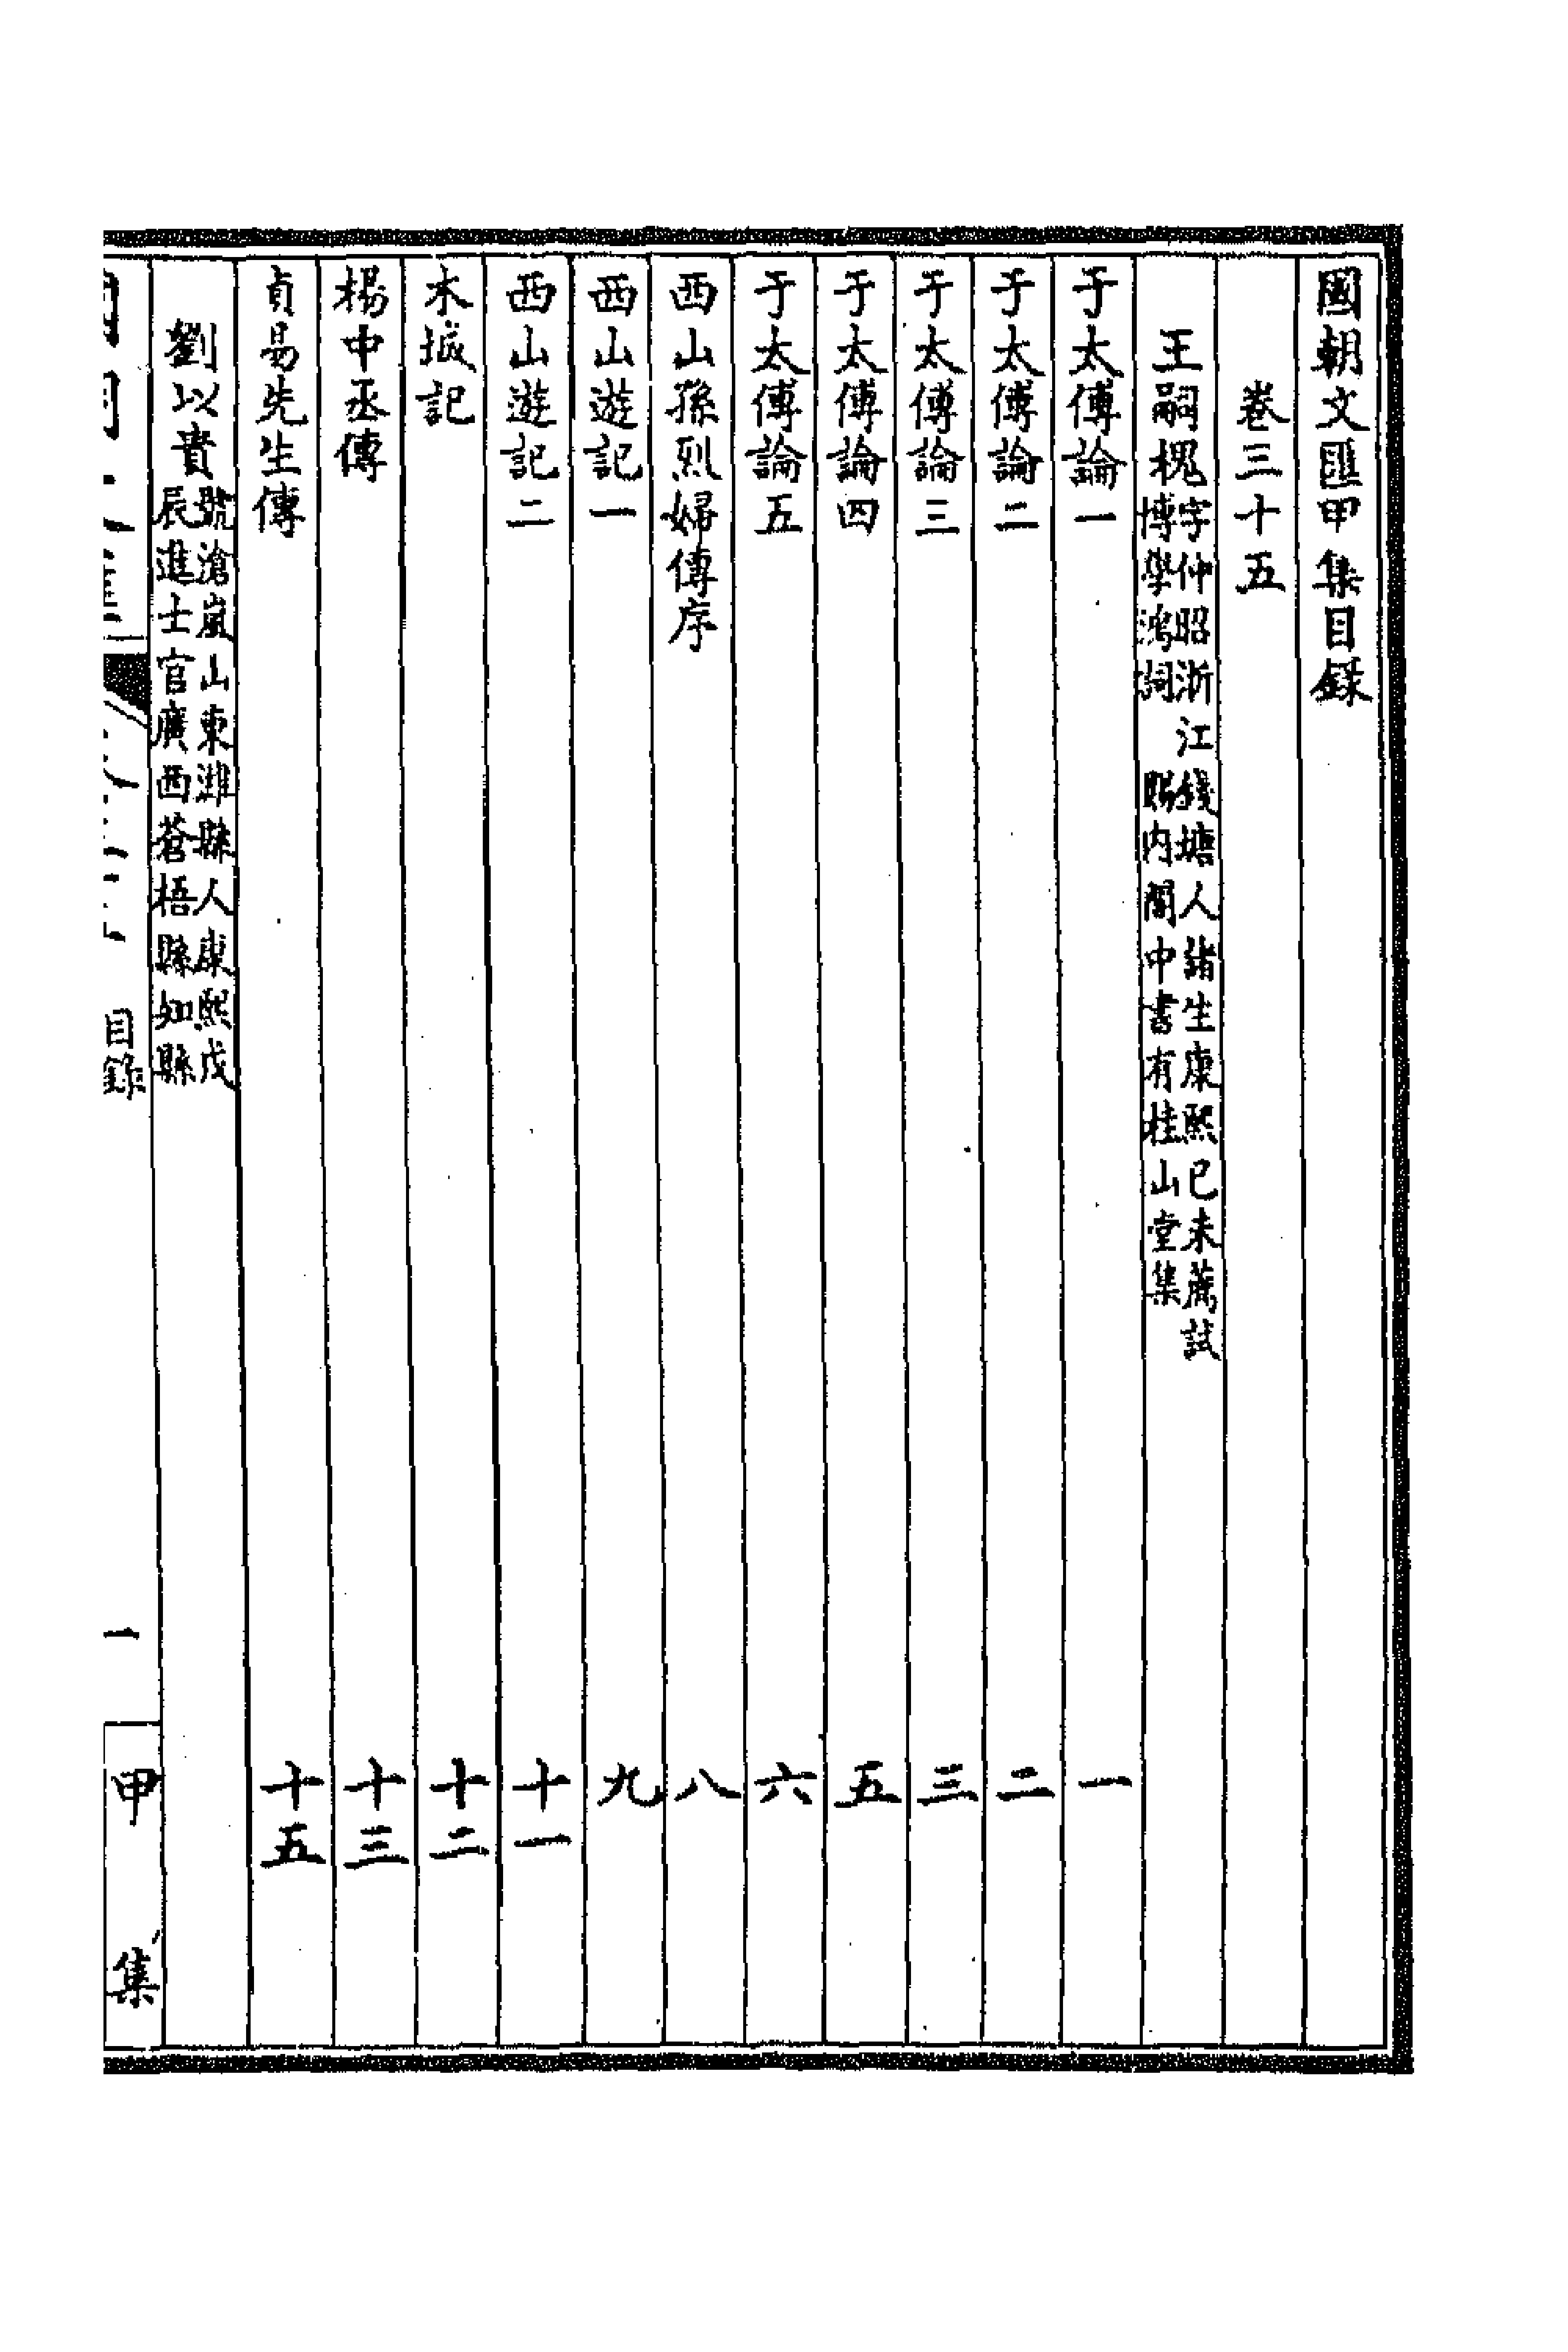 國朝文匯甲集目錄
卷三十五
王嗣槐
字仲昭浙江錢塘人諸生康熙己未薦試
博學鴻詞 賜內閣中書有桂山堂集
于太傅論一 一
于太傅論二 二
于太傅論三 三
于太傅論四 五
于太傅論五 六
西山孫烈婦傳序 八
西山遊記一 九
西山遊記二 十一
木㨖記 十二
楊中丞傳 十三
貞易先生傳 十五
劉以貴
號滄嵐山東濰縣人康熙戊
辰進士官廣西蒼梧縣知縣
目錄
一
甲集